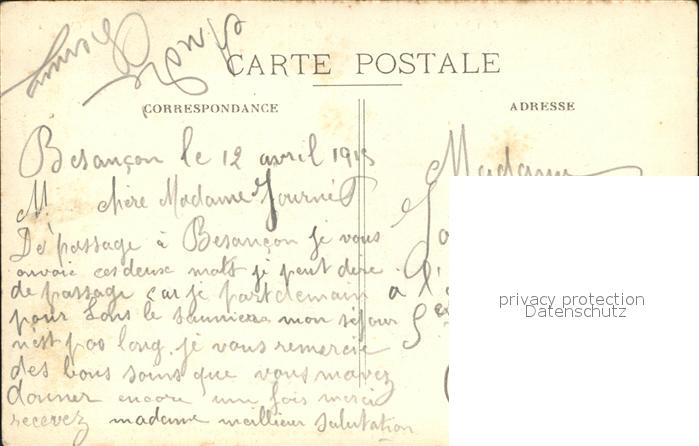 CARTE POSTALE
CORRESPONDANCE
ADRESSE
Besançon le 12 avril 1915
M. chère Madame Journé
De passage à Besançon je vous
envoie ces deux mots je peut dire
de passage car je part demain
pour Lons le Saunier mon séjour
n'est pas long. je vous remercie
des bons soins que vous mavez
donner encore une fois merci
recevez madame meilleur salutation
Madame
a l'
privacy protection
Datenschutz